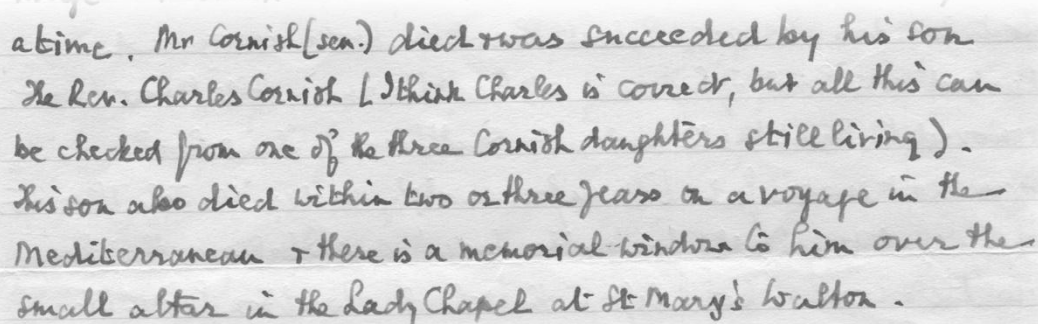 a time. Mr Cornish (sen.) died & was succeeded by his son
the Rev. Charles Cornish (I think Charles is correct, but all this can
be checked from one of the three Cornish daughters still living).
This son also died within two or three years on a voyage in the
Mediterranean & there is a memorial window to him over the
small altar in the Lady Chapel at St Mary's Walton.